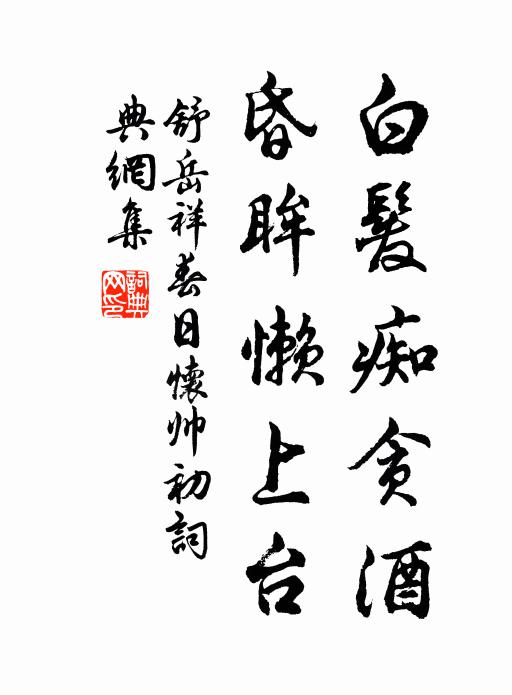 白髮痴貪酒
昏眸懶上台
舒岳祥春日懷帅初詞
典網集
詞典
网印